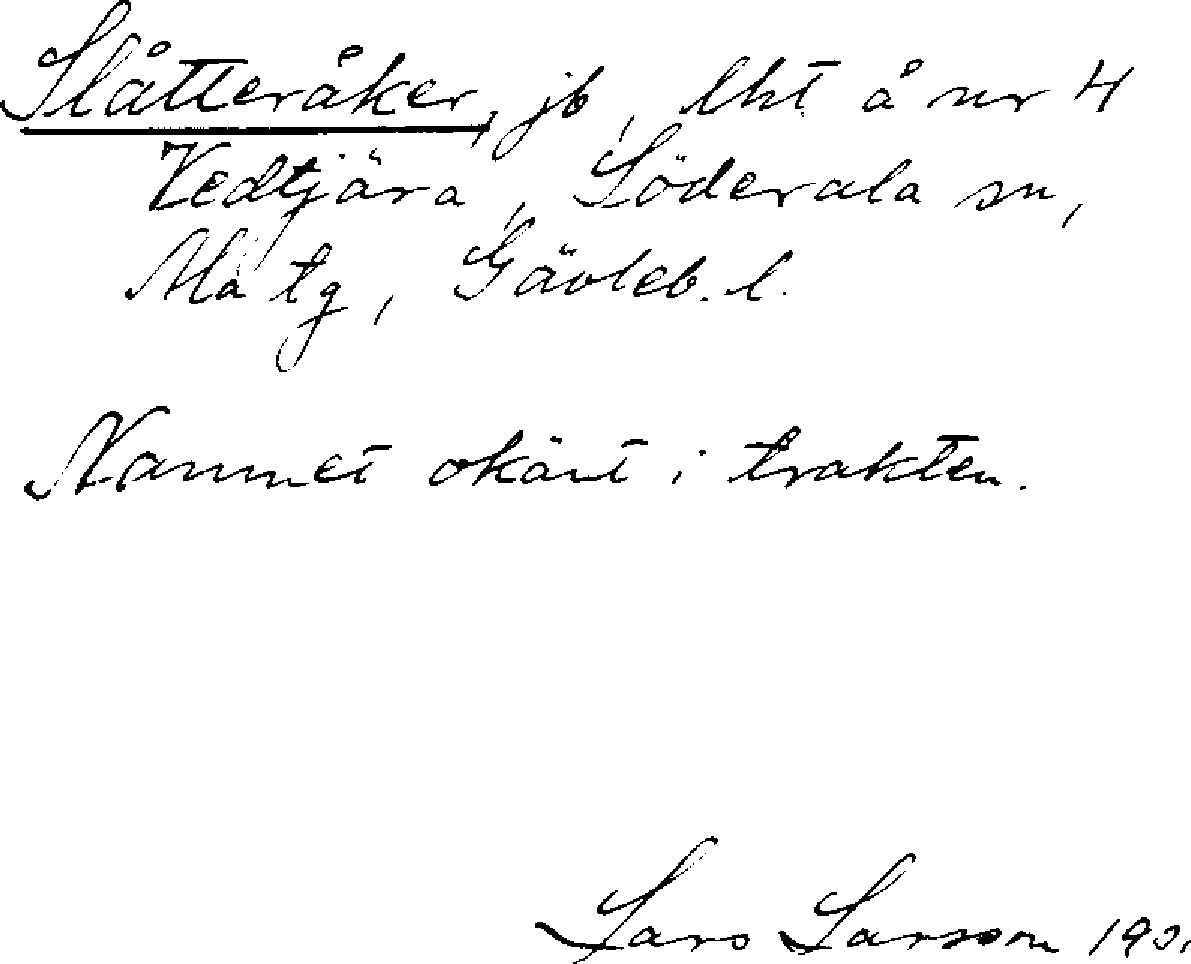 Slåtteråker, jb, lht å nr 4
Vedtjära, Söderala sn,
Ala tg, Gävleb. l.
Namnet okänt i trakten.
Lars Larsson